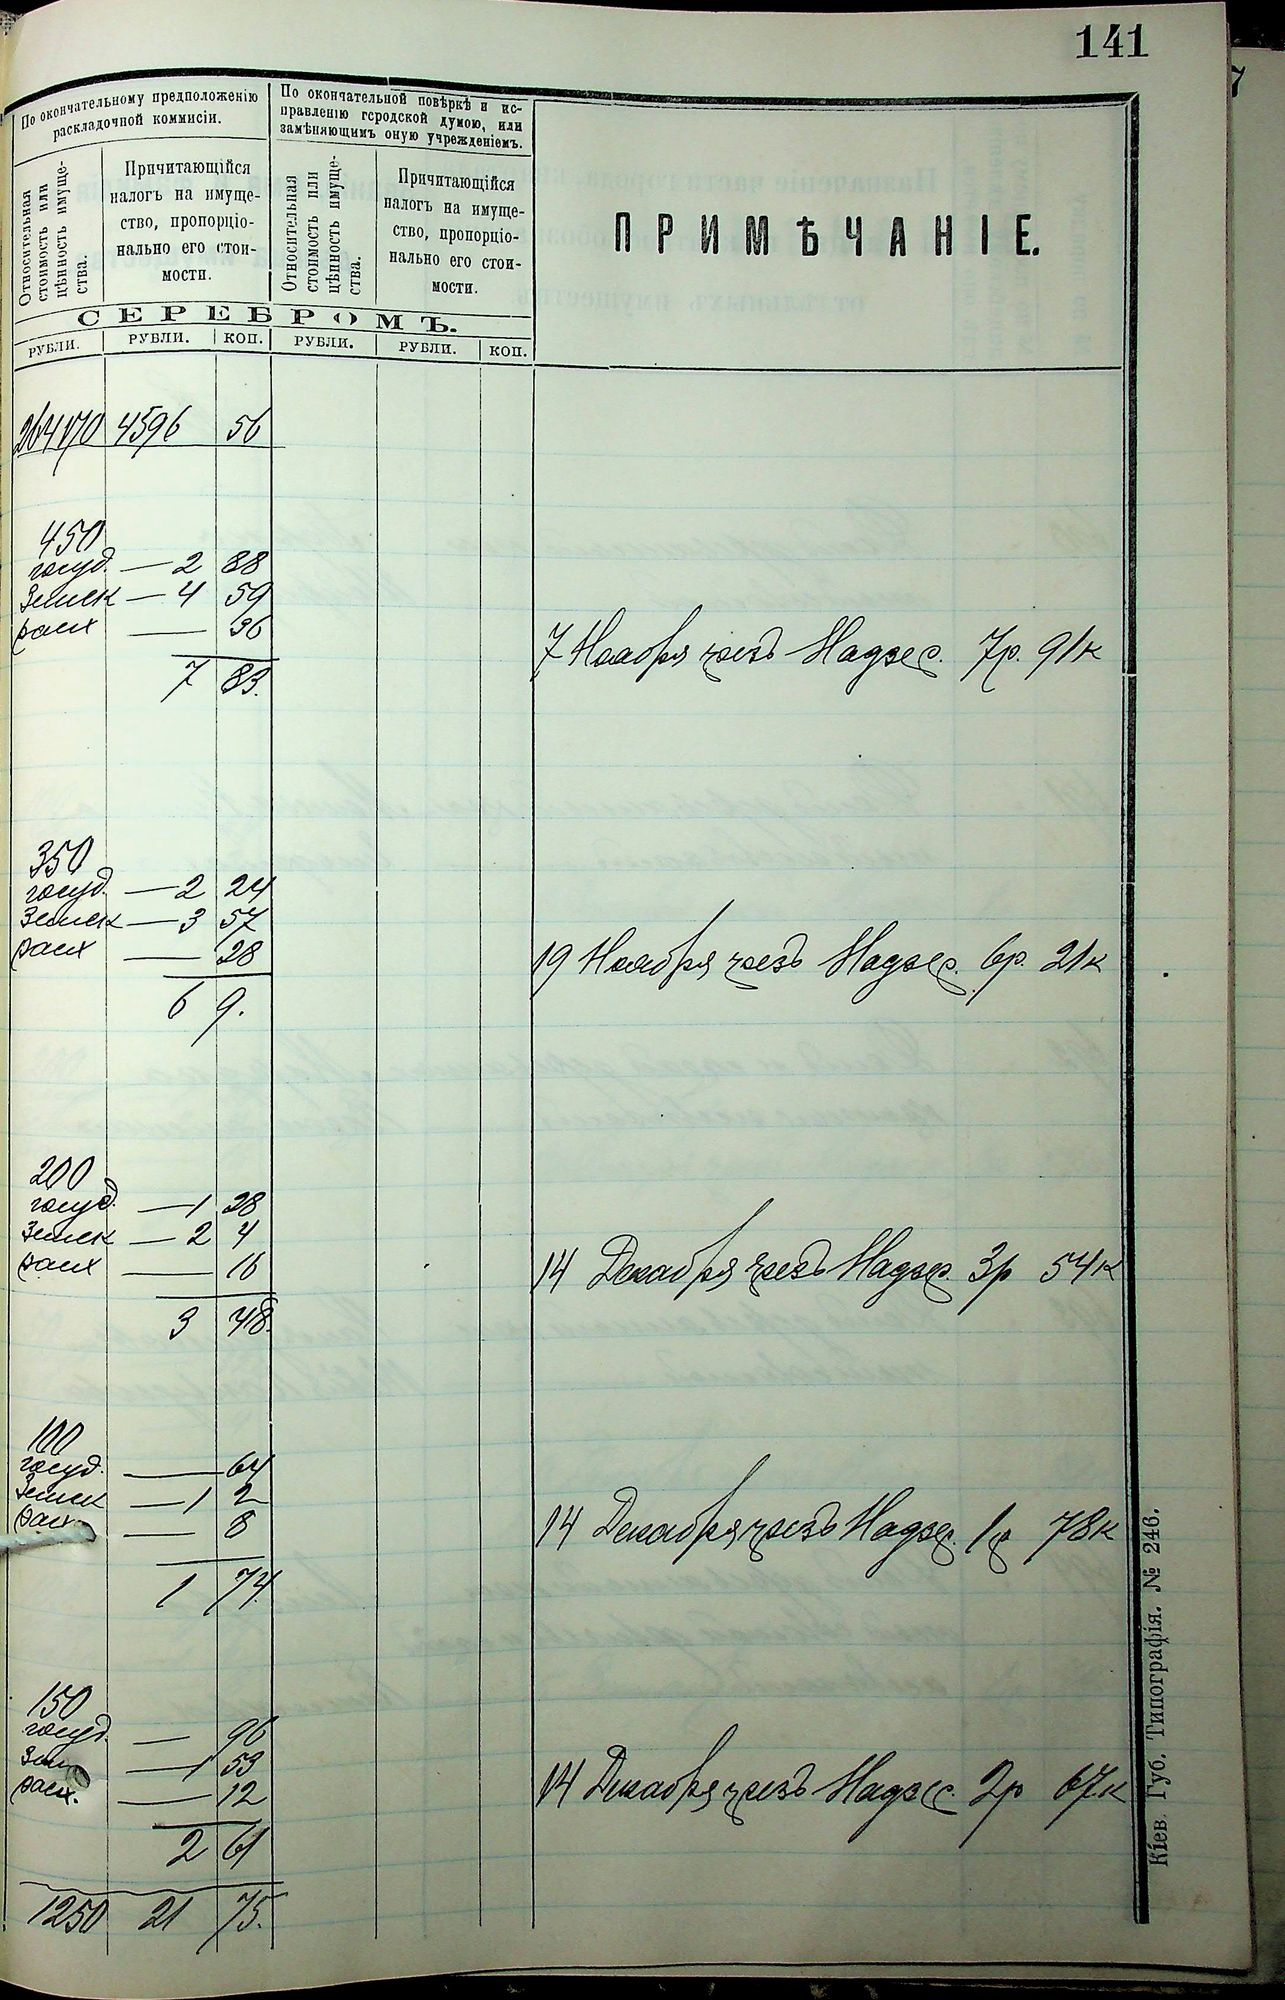 141
По окончательному предположенію
раскладочной коммисіи.
По окончательной повѣркѣ и ис-
правленію городской думою, или
замѣняющимъ оную учрежденіемъ.
Относительная
стоимость или
цѣнность имуще-
ства.
Причитающійся
налогъ на имуще-
ство, пропорціо-
нально его стои-
мости.
Относительная
стоимость или
цѣнность имуще-
ства.
Причитающійся
налогъ на имуще-
ство, пропорціо-
нально его стои-
мости.
ПРИМѢЧАНІЕ.
СЕРЕБРОМЪ.
РУБЛИ. РУБЛИ. КОП. РУБЛИ. РУБЛИ. КОП.
264170 4596 56
450
госуд. — 2 88
Земск — 4 59
расх — 36
7 Ноября чрезъ Надзс. 7р. 91к
7 83.
350
госуд. — 2 24
Земск — 3 57
расх — 28
19 Ноября чрезъ Надзс. 6р. 21к
6 9.
200
госуд. — 1 28
Земск — 2 4
расх — 16
14 Декабря чрезъ Надзс. 3р 54к
3 48.
100
госуд. — 64
Земск — 1 2
расх — 8
14 Декабря чрезъ Надзс. 1р 78к
1 74.
150
госуд. — 96
Зем — 1 53
расх. — 12
14 Декабря чрезъ Надзс. 2р 67к
2 61
1250 21 75.
Кіев. Губ. Типографія. № 246.